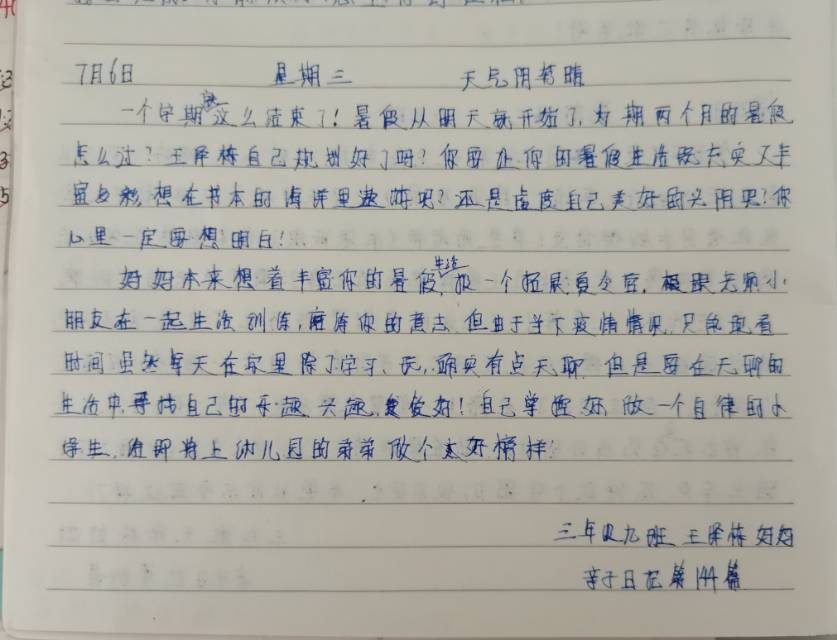 7月6日 星期三 天气阴转晴
一个学期就这么结束了！暑假从明天就开始了，为期两个月的暑假
怎么过？王泽栋自己规划好了吗？你要让你的暑假生活既充实又丰
富多彩，想在书本的海洋里遨游呢？还是虚度自己美好的光阴呢？你
心里一定要想明白！
妈妈本来想着丰富你的暑假生活，报一个拓展夏令营，跟小
朋友在一起生活训练，磨练你的意志。但由于当下疫情情况，只能观看
时间。虽然每天在家里除了学习、玩，确实有点无聊，但是要在无聊的
生活中，寻找自己的乐趣、兴趣、爱好！自己掌握好，做一个自律的小
学生，给即将上幼儿园的弟弟做个大好榜样！
三年级九班 王泽栋妈妈
亲子日记第144篇